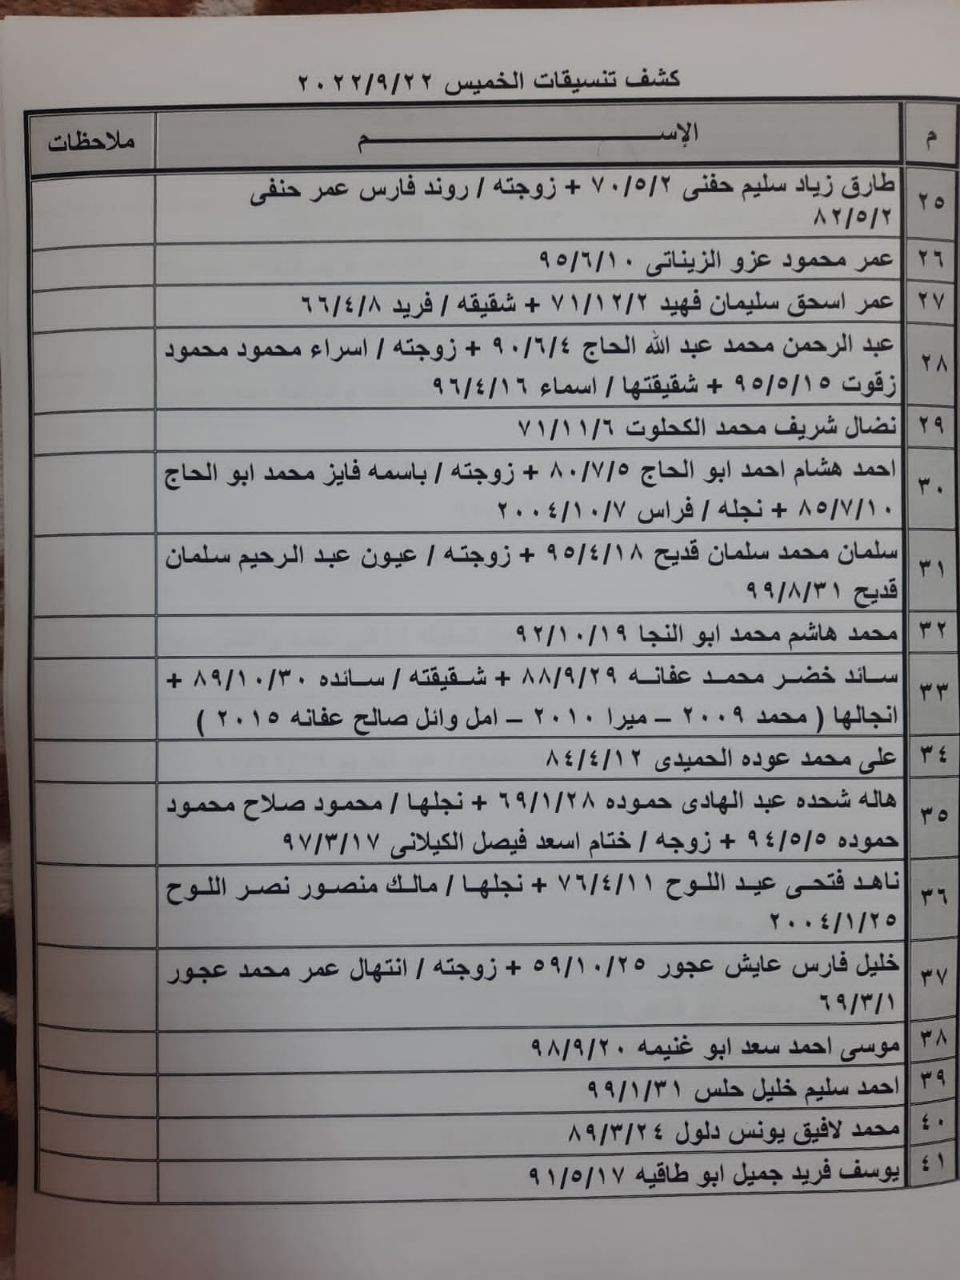 كشف تنسيقات الخميس ٢٠٢٢/٩/٢٢
م الإســـــــم ملاحظات
٢٥ طارق زياد سليم حفنى ٧٠/٥/٢ + زوجته / روند فارس عمر حنفى
٨٢/٥/٢
٢٦ عمر محمود عزو الزيناتى ٩٥/٦/١٠
٢٧ عمر اسحق سليمان فهيد ٧١/١٢/٢ + شقيقه / فريد ٦٦/٤/٨
٢٨ عبد الرحمن محمد عبد الله الحاج ٩٠/٦/٤ + زوجته / اسراء محمود محمود
زقوت ٩٥/٥/١٥ + شقيقتها / اسماء ٩٦/٤/١٦
٢٩ نضال شريف محمد الكحلوت ٧١/١١/٦
٣٠ احمد هشام احمد ابو الحاج ٨٠/٧/٥ + زوجته / باسمه فايز محمد ابو الحاج
٨٥/٧/١٠ + نجله / فراس ٢٠٠٤/١٠/٧
٣١ سلمان محمد سلمان قديح ٩٥/٤/١٨ + زوجته / عيون عبد الرحيم سلمان
قديح ٩٩/٨/٣١
٣٢ محمد هاشم محمد ابو النجا ٩٢/١٠/١٩
٣٣ سائد خضر محمد عفانه ٨٨/٩/٢٩ + شقيقته / سائده ٨٩/١٠/٣٠ +
انجالها ( محمد ٢٠٠٩ – ميرا ٢٠١٠ – امل وائل صالح عفانه ٢٠١٥ )
٣٤ على محمد عوده الحميدى ٨٤/٤/١٢
٣٥ هاله شحده عبد الهادى حموده ٦٩/١/٢٨ + نجلها / محمود صلاح محمود
حموده ٩٤/٥/٥ + زوجه / ختام اسعد فيصل الكيلانى ٩٧/٣/١٧
٣٦ ناهد فتحى عيد اللوح ٧٦/٤/١١ + نجلها / مالك منصور نصر اللوح
٢٠٠٤/١/٢٥
٣٧ خليل فارس عايش عجور ٥٩/١٠/٢٥ + زوجته / انتهال عمر محمد عجور
٦٩/٣/١
٣٨ موسى احمد سعد ابو غنيمه ٩٨/٩/٢٠
٣٩ احمد سليم خليل حلس ٩٩/١/٣١
٤٠ محمد لافيق يونس دلول ٨٩/٣/٢٤
٤١ يوسف فريد جميل ابو طاقيه ٩١/٥/١٧